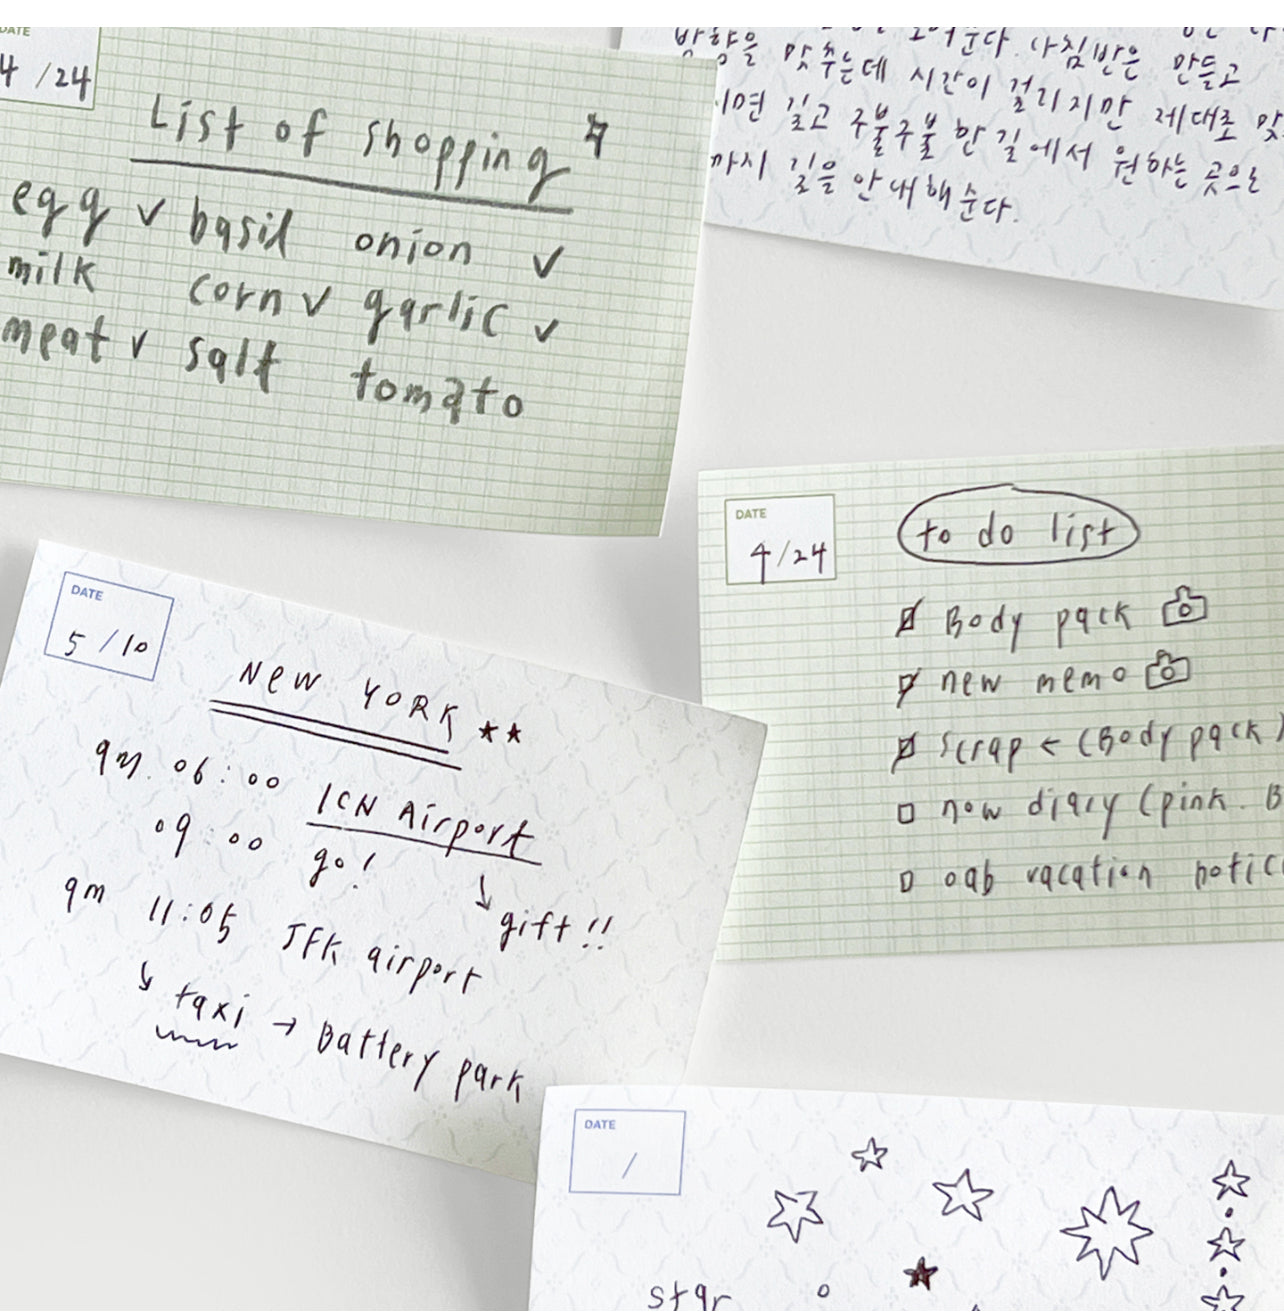 DATE
4/24
List of shopping
egg ✓ basil onion ✓
milk corn ✓ garlic ✓
meat ✓ salt tomato
방향을 맞추는데 시간이 걸리지만 제대로
길고 구불구불한 길에서 원하는 곳으로
까지 길을 안내해준다.
DATE
4/24
to do list
Body pack
new memo
scrap ← (Body pack)
now diary (pink. B
oab vacation notic
DATE
5/10
NEW YORK ★★
am. 06:00 ICN Airport
09:00 go! ↓ gift!!
am 11:05 JFK airport
↓ taxi → Battery park
DATE
/
star